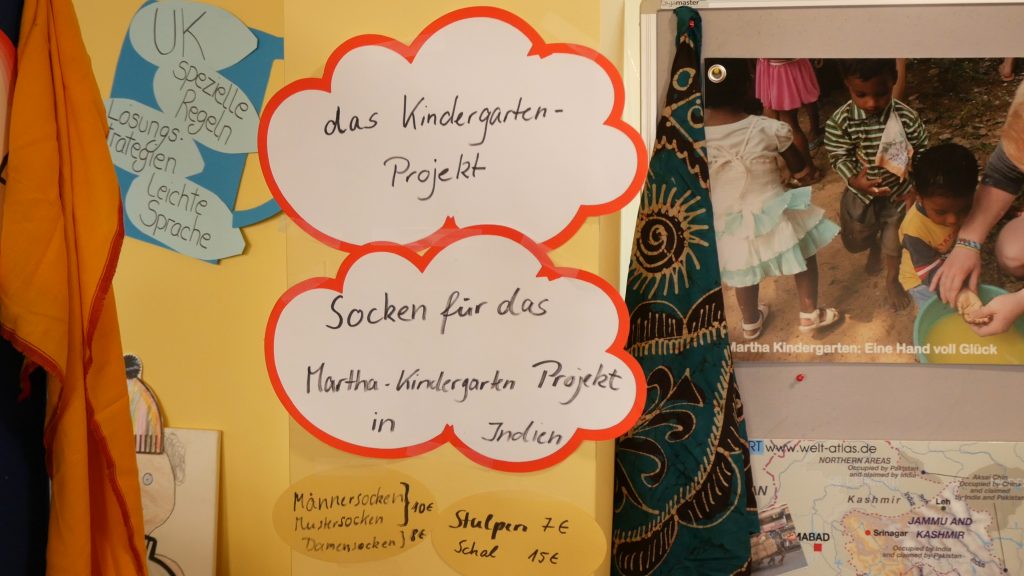 UK
spezielle
Regeln
Lösungs-
strategien
Leichte
Sprache
das Kindergarten-
Projekt
Socken für das
Martha-Kindergarten Projekt
in Indien
Männersocken
Mustersocken } 10€
Damensocken } 8€
Stulpen 7€
Schal 15€
master
Martha Kindergarten: Eine Hand voll Glück
RT www.welt-atlas.de
NORTHERN AREAS
Occupied by Pakistan
and claimed by India
Aksai Chin
Occupied by China
and claimed
by India
Kashmir
Leh
JAMMU AND
KASHMIR
Srinagar
MABAD
Occupied by India
and claimed by Pakistan
AN